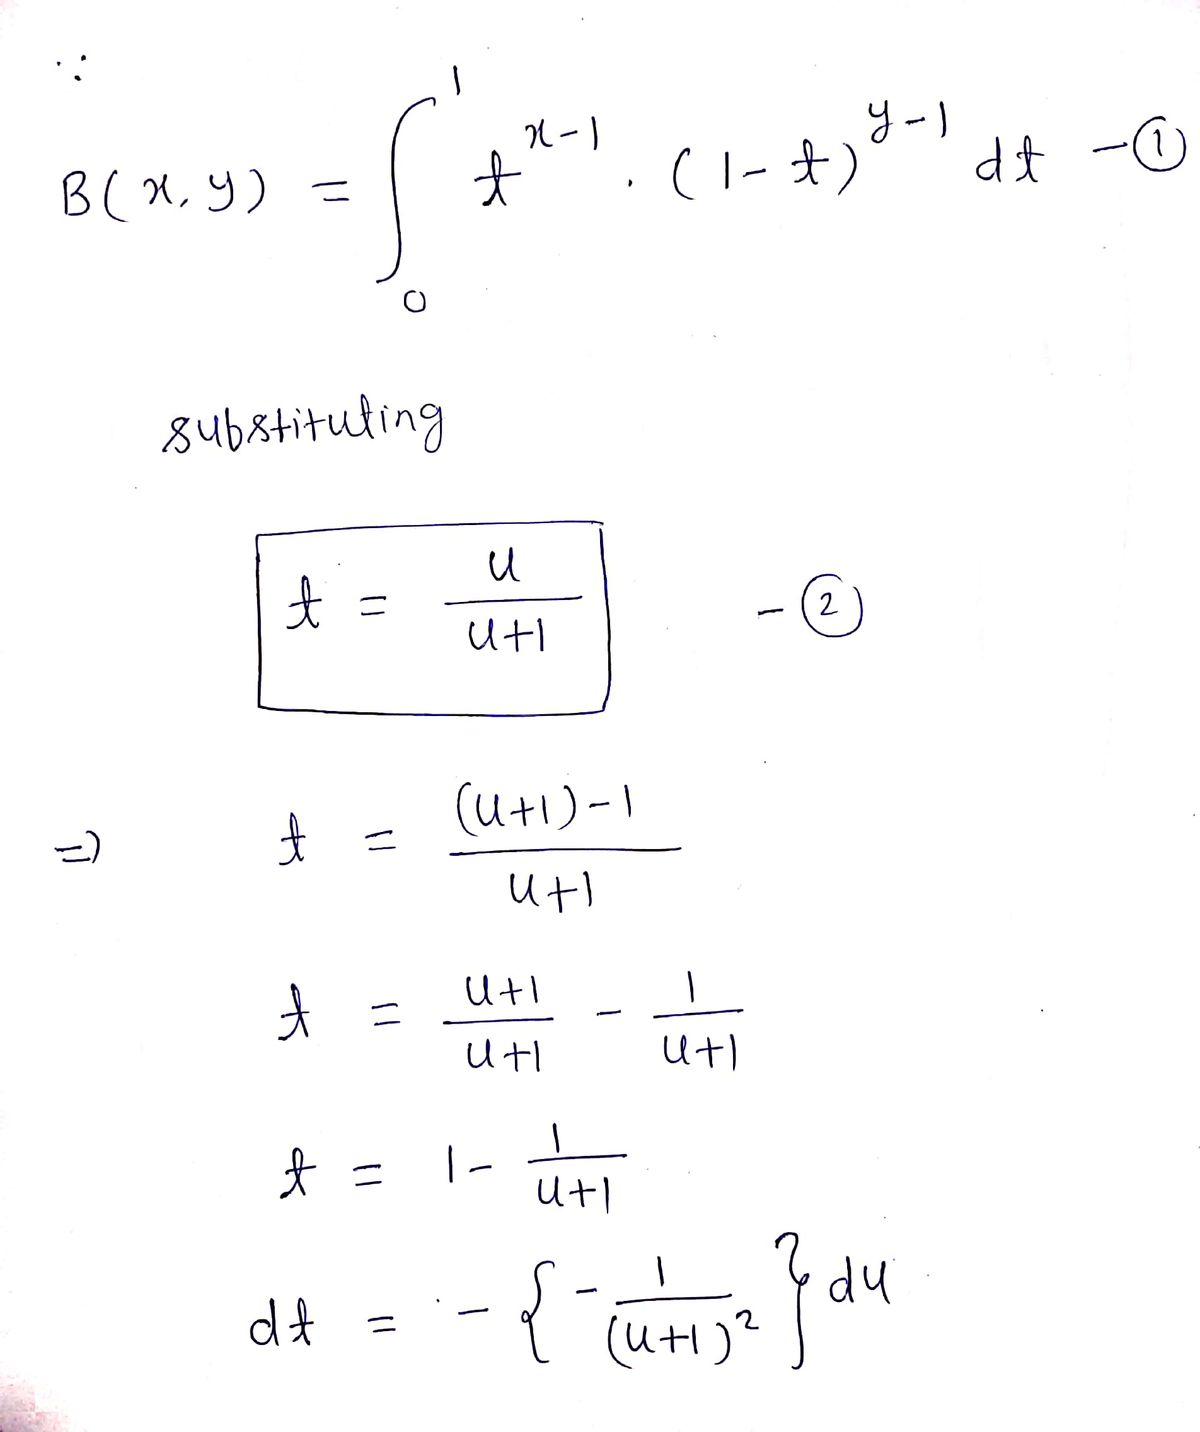 ∵
B(x, y) = ∫₀¹ t^(x-1) . (1-t)^(y-1) dt -①
substituting
t = u/(u+1) -②
=> t = ((u+1)-1)/(u+1)
t = (u+1)/(u+1) - 1/(u+1)
t = 1 - 1/(u+1)
dt = -{-1/(u+1)²} du